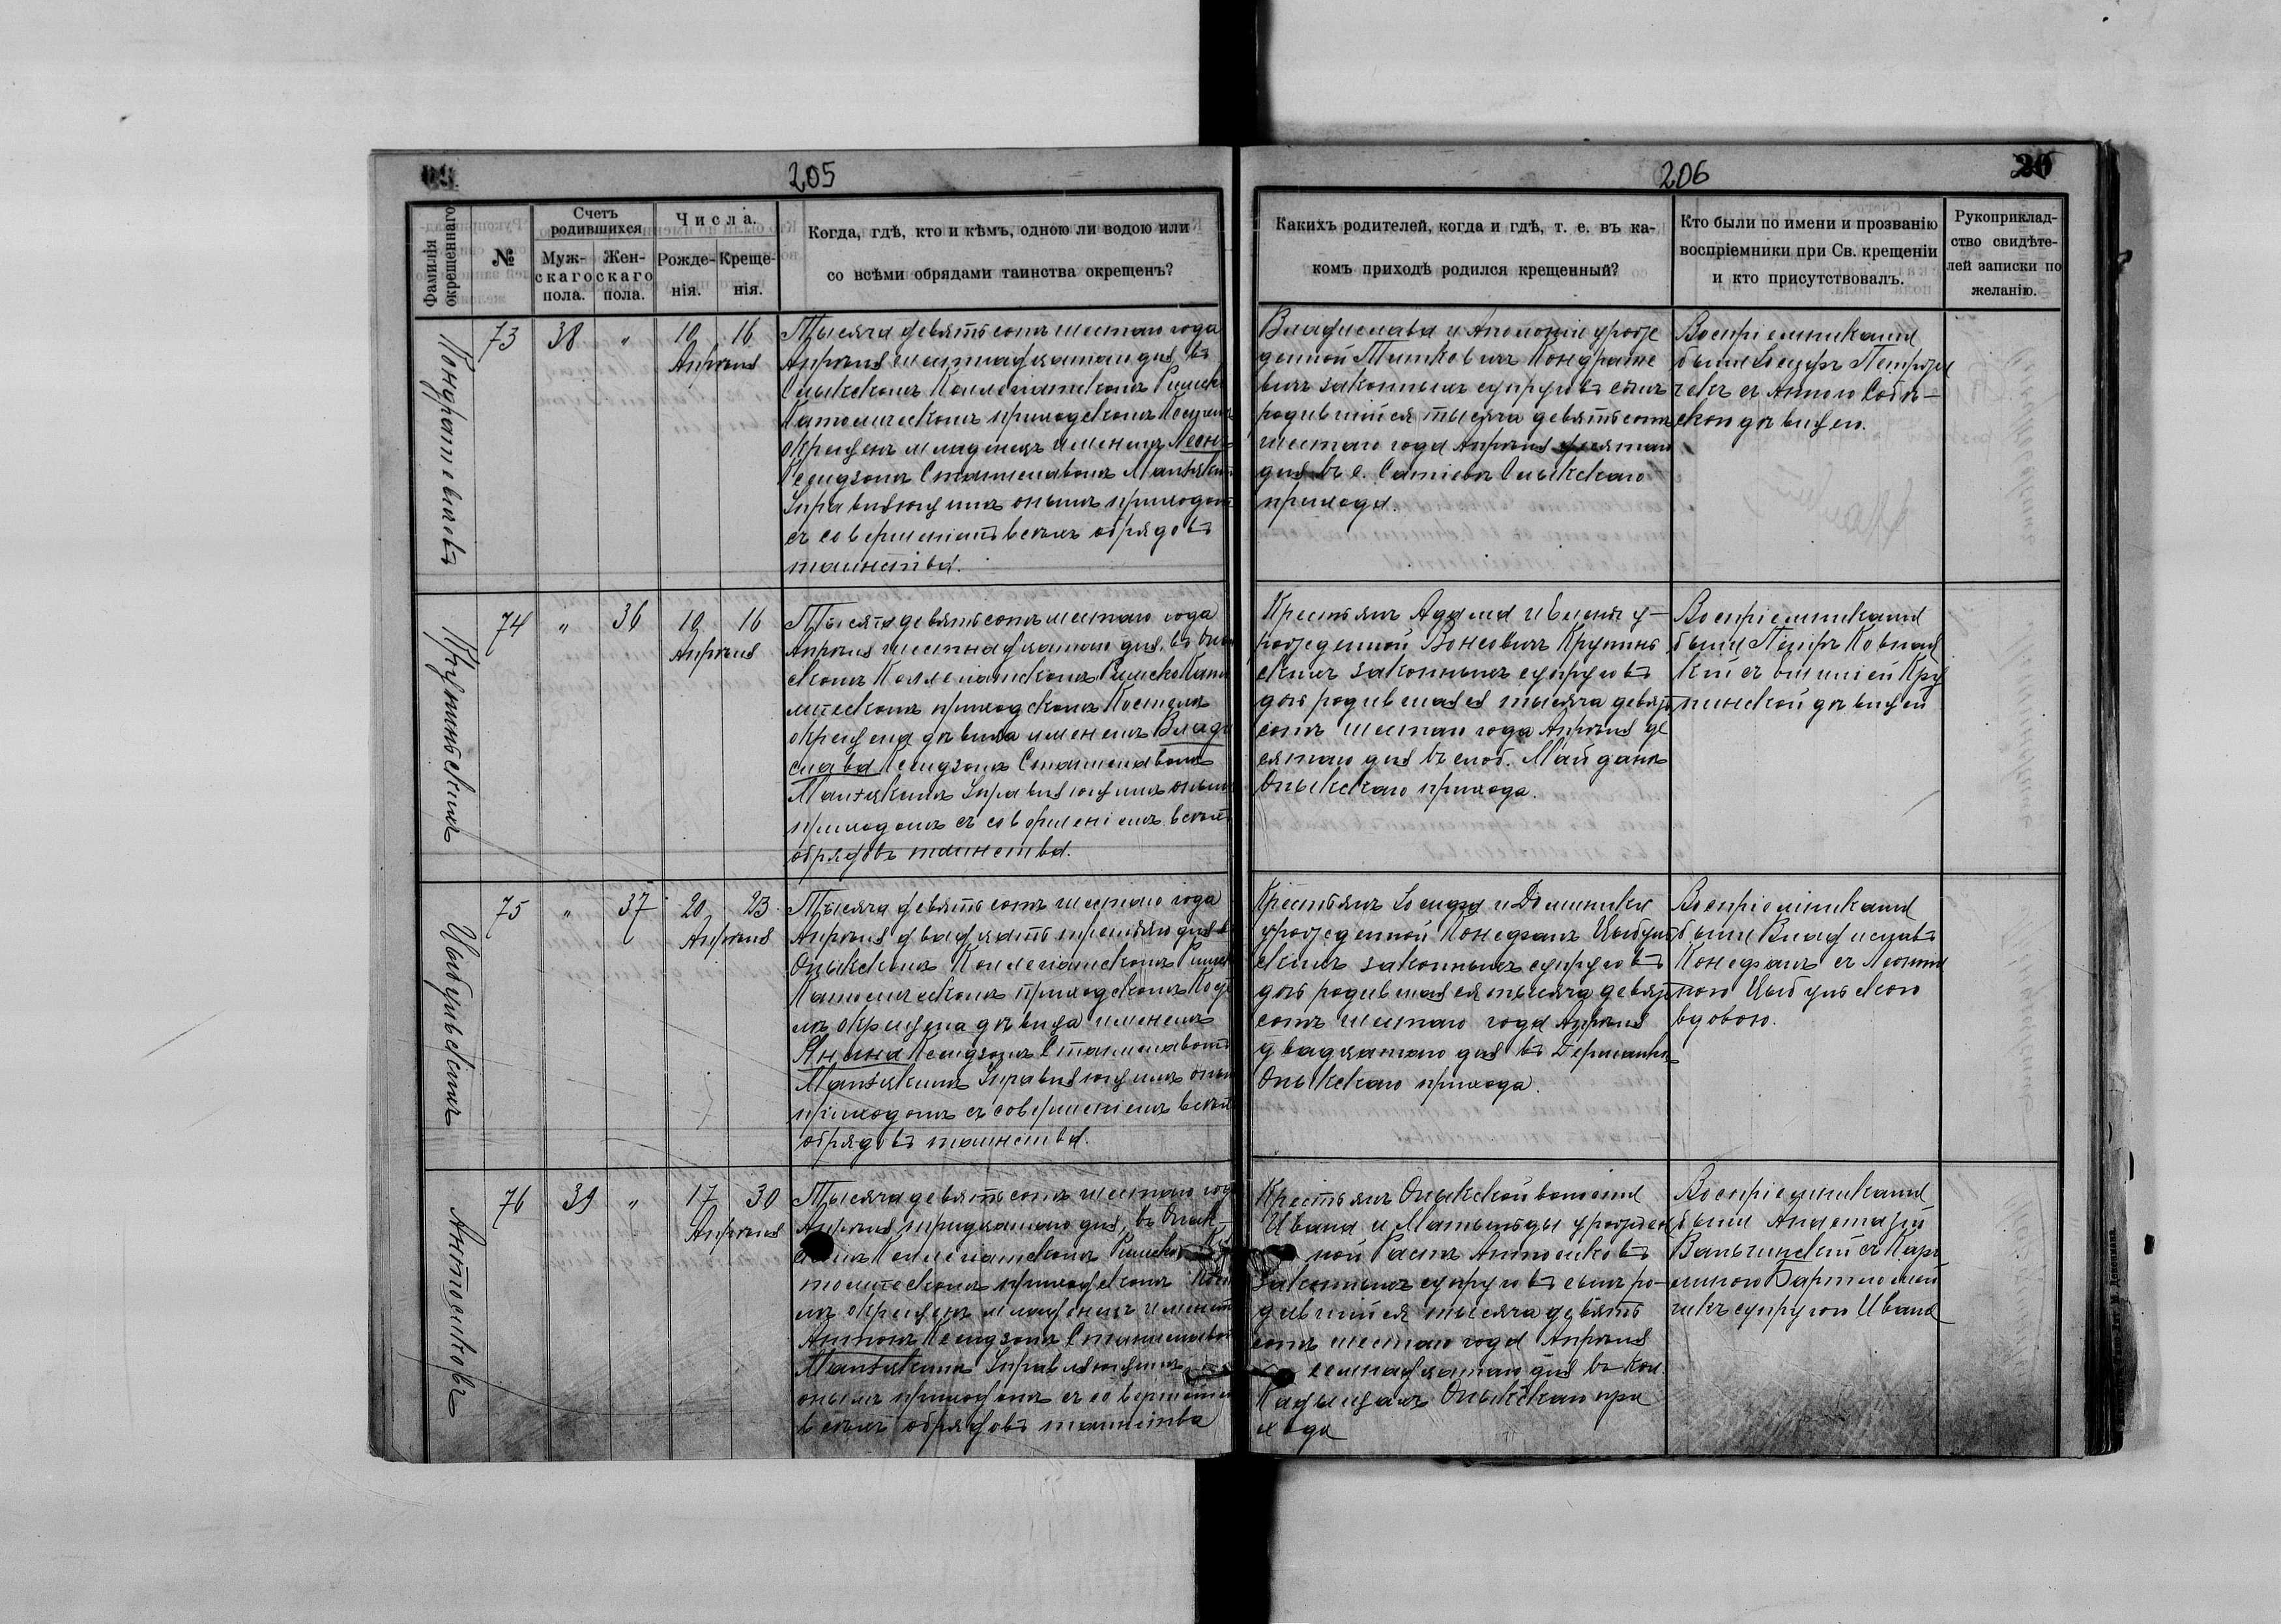 205
Фамилія
окрещеннаго
№
Счетъ
родившихся
Муж-
скаго
пола.
Жен-
скаго
пола.
Числа.
Рожде-
нія.
Креще-
нія.
Когда, гдѣ, кто и кѣмъ, одною ли водою или
со всѣми обрядами таинства окрещенъ?
206
20
Какихъ родителей, когда и гдѣ, т. е. въ ка-
комъ приходѣ родился крещенный?
Кто были по имени и прозванію
воспріемники при Св. крещеніи
и кто присутствовалъ.
Рукоприклад-
ство свидѣте-
лей записки по
желанію.
Кондратевичъ
73 38 " 10 16
Апрѣля
Тысяча девятьсотъ шестаго года
Апрѣля шестнадцатаго дня въ
Олыкскомъ Коллегіатскомъ Римско
Католическомъ приходскомъ Костелѣ
окрещенъ младенецъ именемъ Леонъ
Ксендзомъ Станиславомъ
Управляющимъ онымъ приходомъ
съ совершеніемъ всѣхъ обрядовъ
таинства.
Владислава и Аполоніи урож
денной Кондрате
вичъ законныхъ супруговъ сынъ
родившійся тысяча девятьсотъ
шестаго года Апрѣля десятаго
дня въ с. Сатіевъ Олыкскаго
прихода.
Воспріемниками
были Іосифъ
съ Анною
скою дѣвицею.
Крупиньскихъ
74 " 36 10 16
Апрѣля
Тысяча девятьсотъ шестаго года
Апрѣля шестнадцатаго дня, въ Олык
скомъ Коллегіатскомъ Римско Като
лическомъ приходскомъ Костелѣ
окрещена дѣвица именемъ Влади
слава Ксендзомъ Станиславомъ
Управляющимъ онымъ
приходомъ съ совершеніемъ всѣхъ
обрядовъ таинства.
Крестьянъ Адама и у-
рожденной Крупинь
скихъ законныхъ супруговъ
дочь родившаяся тысяча девять
сотъ шестаго года Апрѣля де
сятаго дня въ слоб. Майданъ
Олыкскаго прихода.
Воспріемниками
были Петръ
кій съ Кру
пинской дѣвицей
Цыбульскихъ
75 " 37 20 23
Апрѣля
Тысяча девятьсотъ шестаго года
Апрѣля двадцать третьяго дня въ
Олыкскомъ Коллегіатскомъ Римско
Католическомъ приходскомъ Косте
лѣ окрещена дѣвица именемъ
Янина Ксендзомъ Станиславомъ
Управляющимъ онымъ
приходомъ съ совершеніемъ всѣхъ
обрядовъ таинства.
Крестьянъ Іосифа и Доминики
урожденной Цыбуль
скихъ законныхъ супруговъ
дочь родившаяся тысяча девять
сотъ шестаго года Апрѣля
двадцатаго дня въ Дерманкѣ
Олыкскаго прихода.
Воспріемниками
были Владиславъ
съ
Цыбульскою
вдовою.
Антосиковъ
76 39 " 17 30
Апрѣля
Тысяча девятьсотъ шестаго года
Апрѣля тридцатаго дня, въ Олык
скомъ Коллегіатскомъ Римско Ка
толическомъ приходскомъ Косте
лѣ окрещенъ младенецъ именемъ
Антонъ Ксендзомъ Станиславомъ
Управляющимъ
онымъ приходомъ съ совершеніемъ
всѣхъ обрядовъ таинства
Крестьянъ Олыкской волости
Ивана и Матильды урожден
ной Антосиковъ
законныхъ супруговъ сынъ ро-
дившійся тысяча девять
сотъ шестаго года Апрѣля
семнадцатаго дня въ кол.
Кадыщахъ Олыкскаго при
хода
Воспріемниками
были Анастазій
съ Каро
линою
супругою Ивана